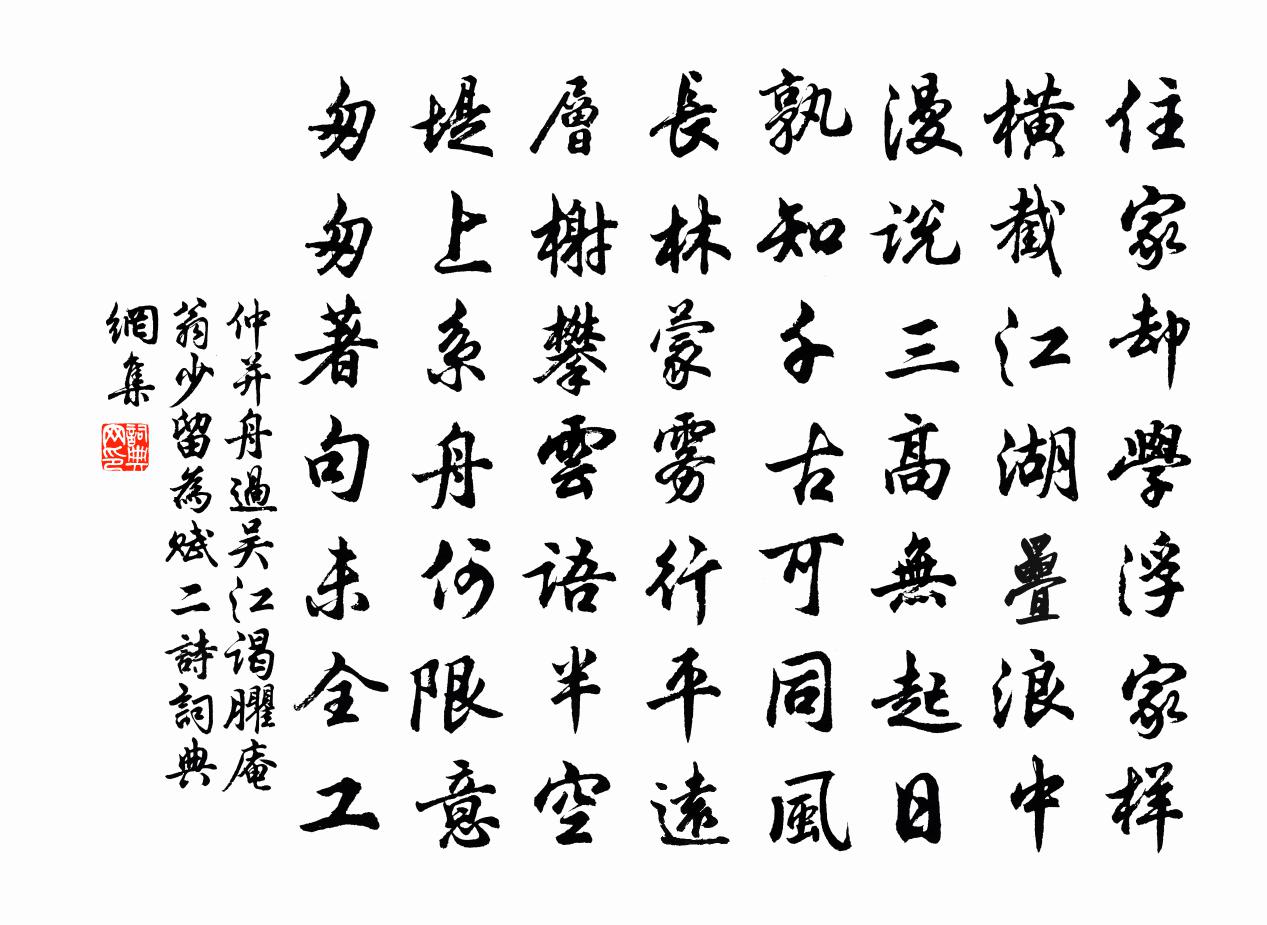 住家却學浮家样
橫截江湖疊浪中
漫説三高無起日
孰知千古可同風
長林蒙雾行平遠
層榭攀雲語半空
堤上系舟何限意
匆匆著句未全工
仲并舟過吴江谒臞庵
翁少留為赋二詩詞典
網集
詞典
网印